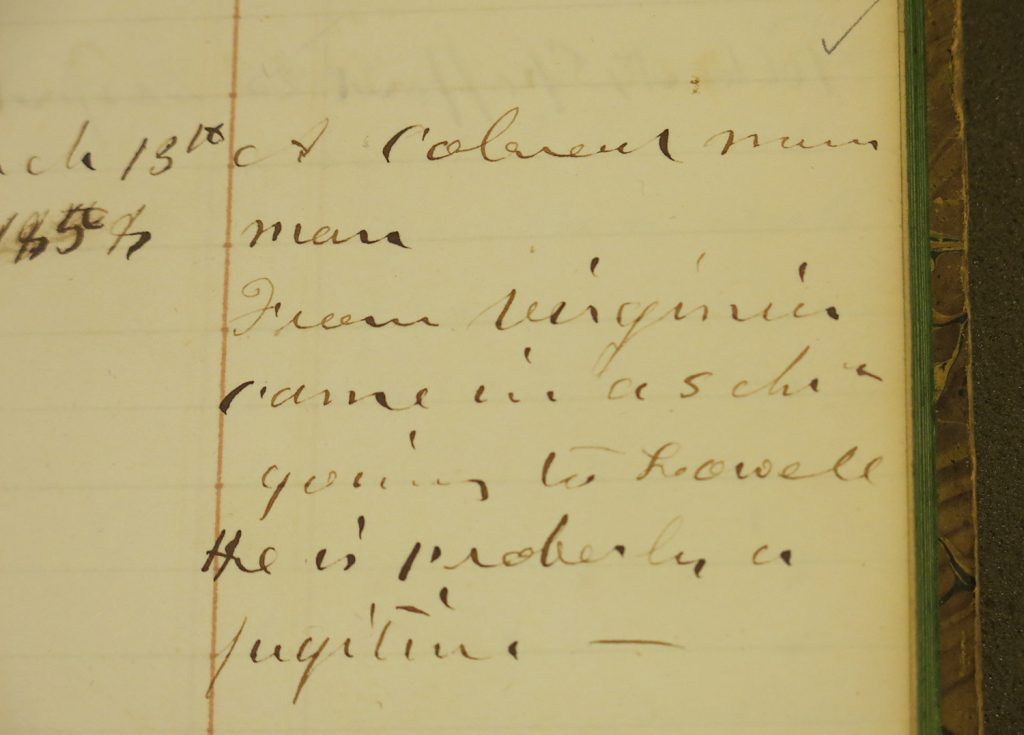 ch 13th A Colored man
1858 man
From Virginia
came in a sch
going to Lowell
He is proberly a
fugitive —